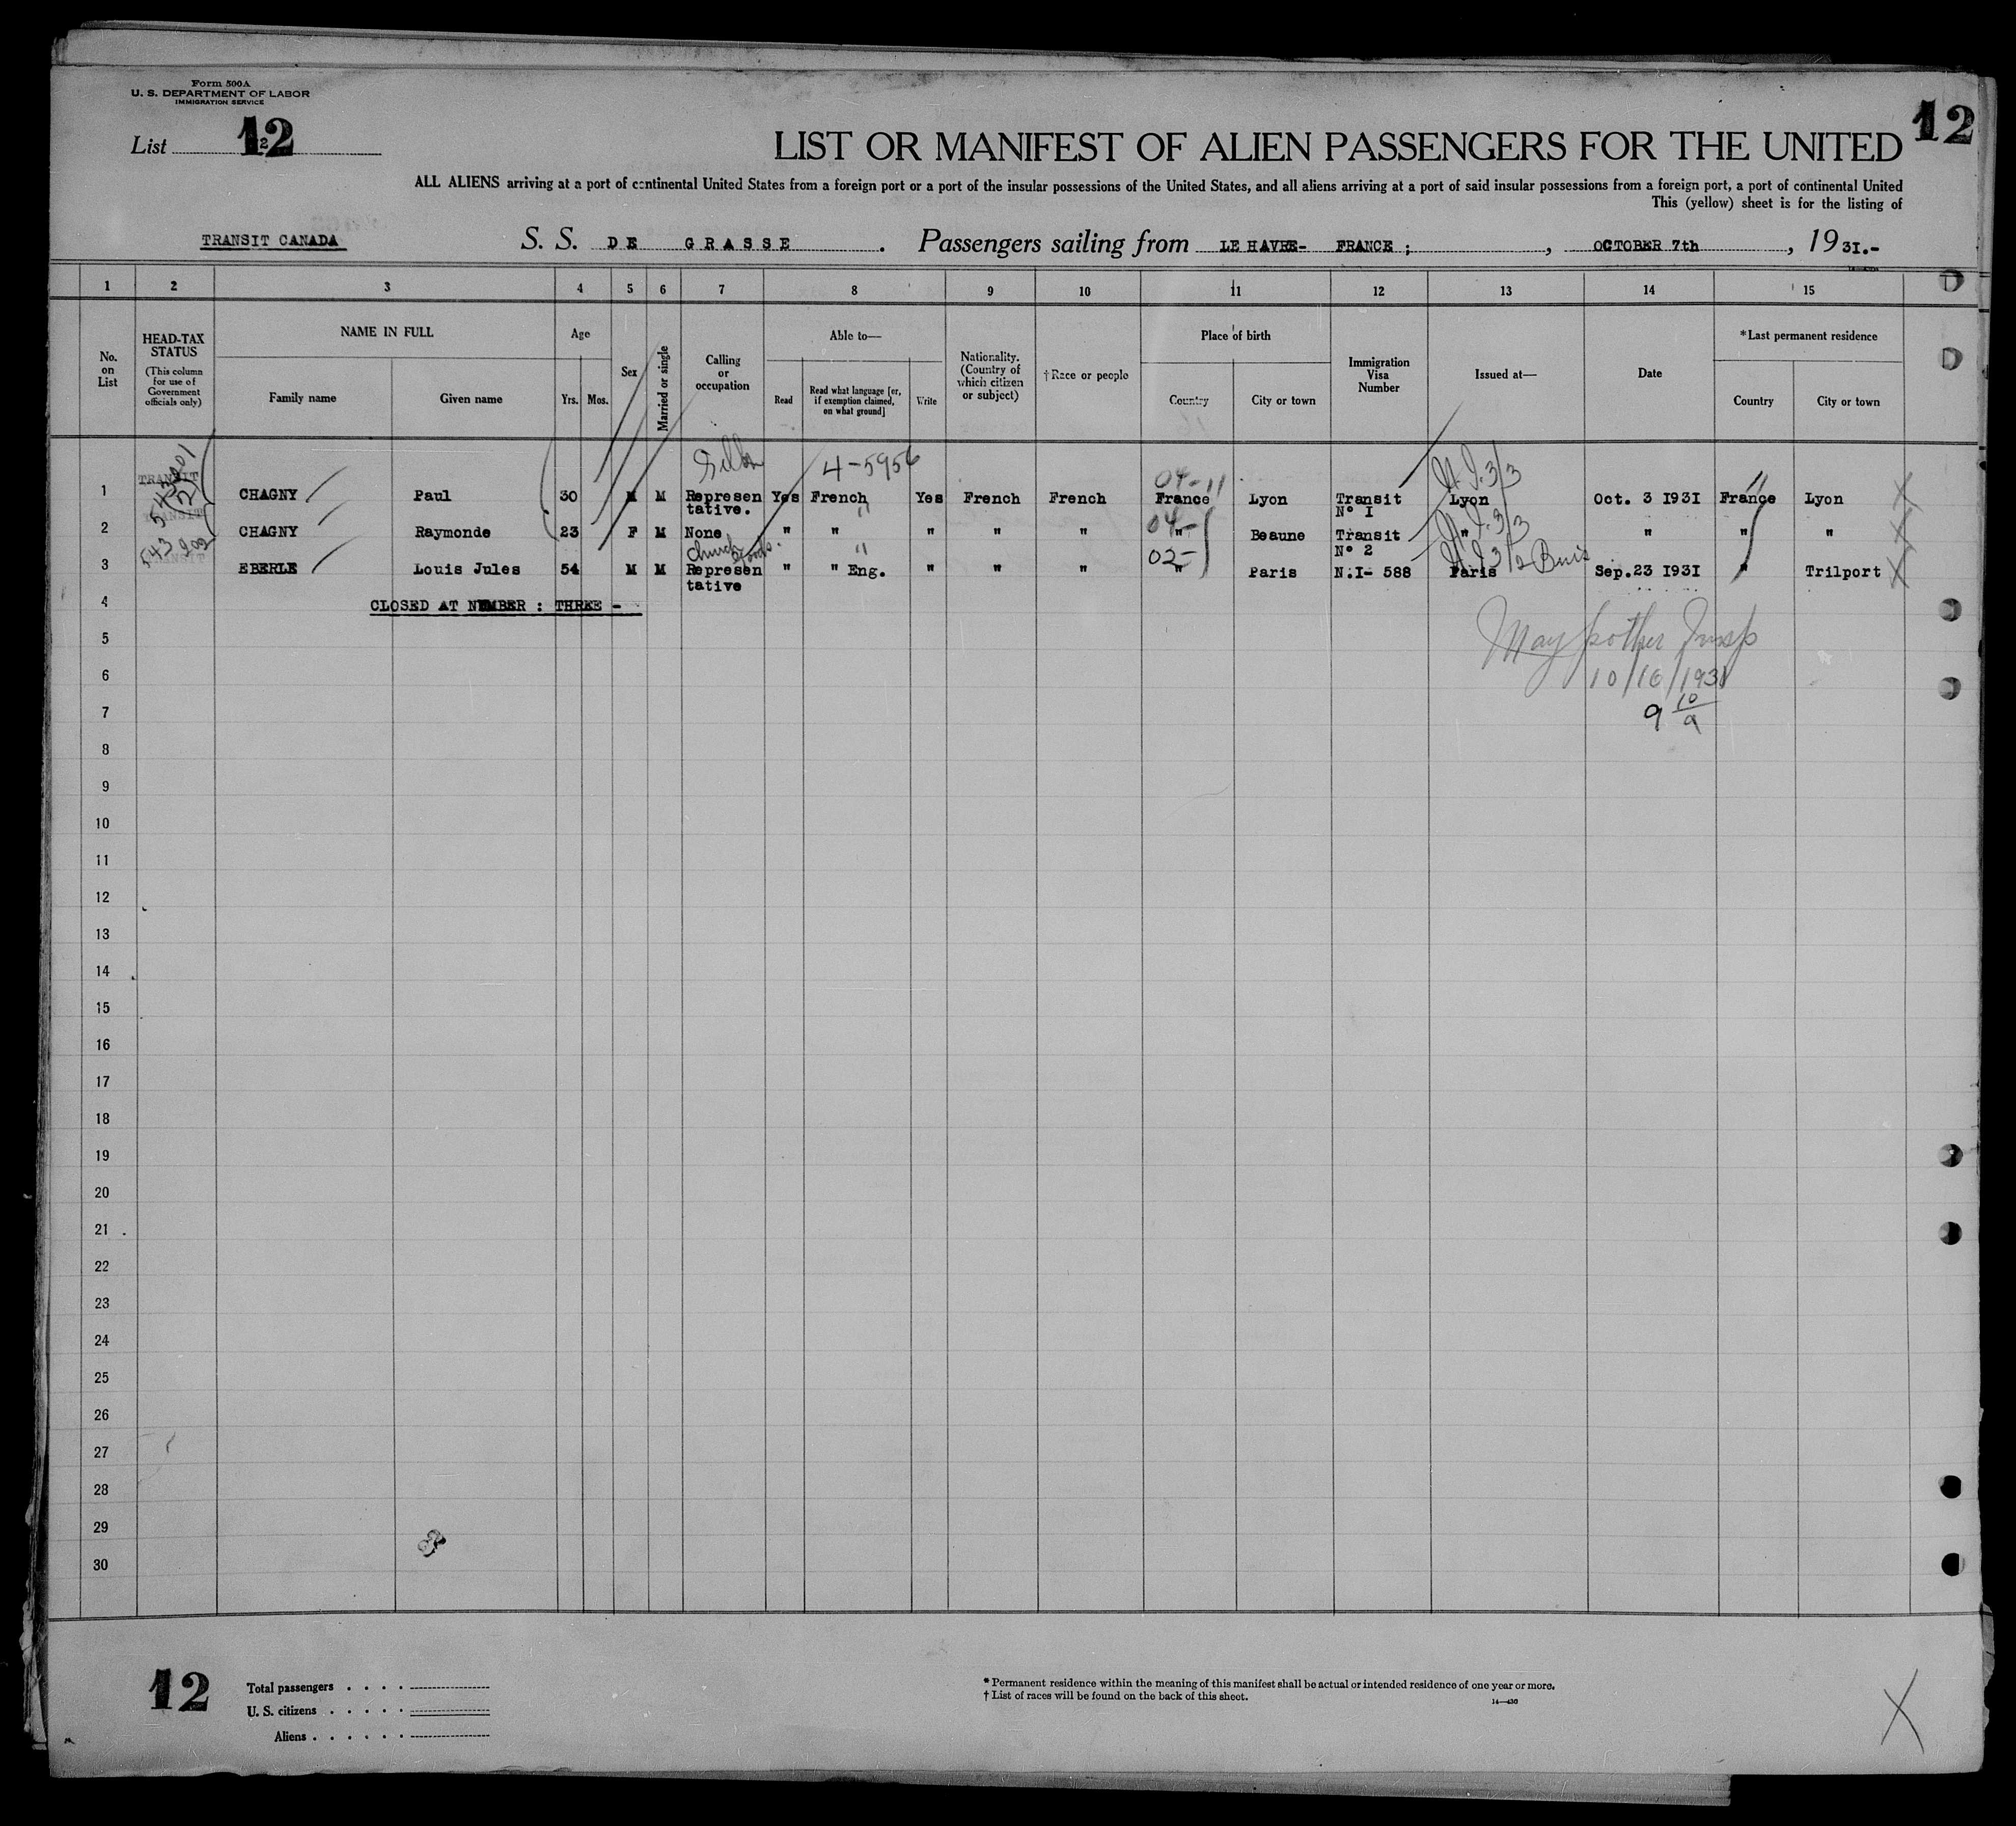 Form 500A
U. S. DEPARTMENT OF LABOR
IMMIGRATION SERVICE
List 12
12
LIST OR MANIFEST OF ALIEN PASSENGERS FOR THE UNITED
ALL ALIENS arriving at a port of continental United States from a foreign port or a port of the insular possessions of the United States, and all aliens arriving at a port of said insular possessions from a foreign port, a port of continental United
This (yellow) sheet is for the listing of
TRANSIT CANADA S. S. DE GRASSE . Passengers sailing from LE HAVRE- FRANCE ; , OCTOBER 7th , 1931.-
1 2 3 4 5 6 7 8 9 10 11 12 13 14 15
No. on List
HEAD-TAX STATUS
(This column for use of Government officials only)
NAME IN FULL
Family name Given name
Age
Yrs. Mos.
Sex
Married or single
Calling or occupation
Able to—
Read
Read what language [or, if exemption claimed, on what ground]
Write
Nationality. (Country of which citizen or subject)
† Race or people
Place of birth
Country City or town
Immigration Visa Number
Issued at—
Date
*Last permanent residence
Country City or town
4-5956
04-11
1 TRANSIT CHAGNY Paul 30 M M Represen Yes French Yes French French France Lyon Transit Lyon Oct. 3 1931 France Lyon
tative. Nº I
2 TRANSIT CHAGNY Raymonde 23 F M None " " " " " " Beaune Transit " " " "
04-
Nº 2
02-
3 TRANSIT EBERLE Louis Jules 54 M M Represen " " Eng. " " " " Paris N.I- 588 Paris Sep.23 1931 " Trilport
tative
4 CLOSED AT NUMBER : THREE -
5
6 10/16/1931
7 9 10/9
8
9
10
11
12
13
14
15
16
17
18
19
20
21
22
23
24
25
26
27
28
29
30
12
Total passengers . . . .
U. S. citizens . . . . .
Aliens . . . . . .
* Permanent residence within the meaning of this manifest shall be actual or intended residence of one year or more.
† List of races will be found on the back of this sheet.
14—430